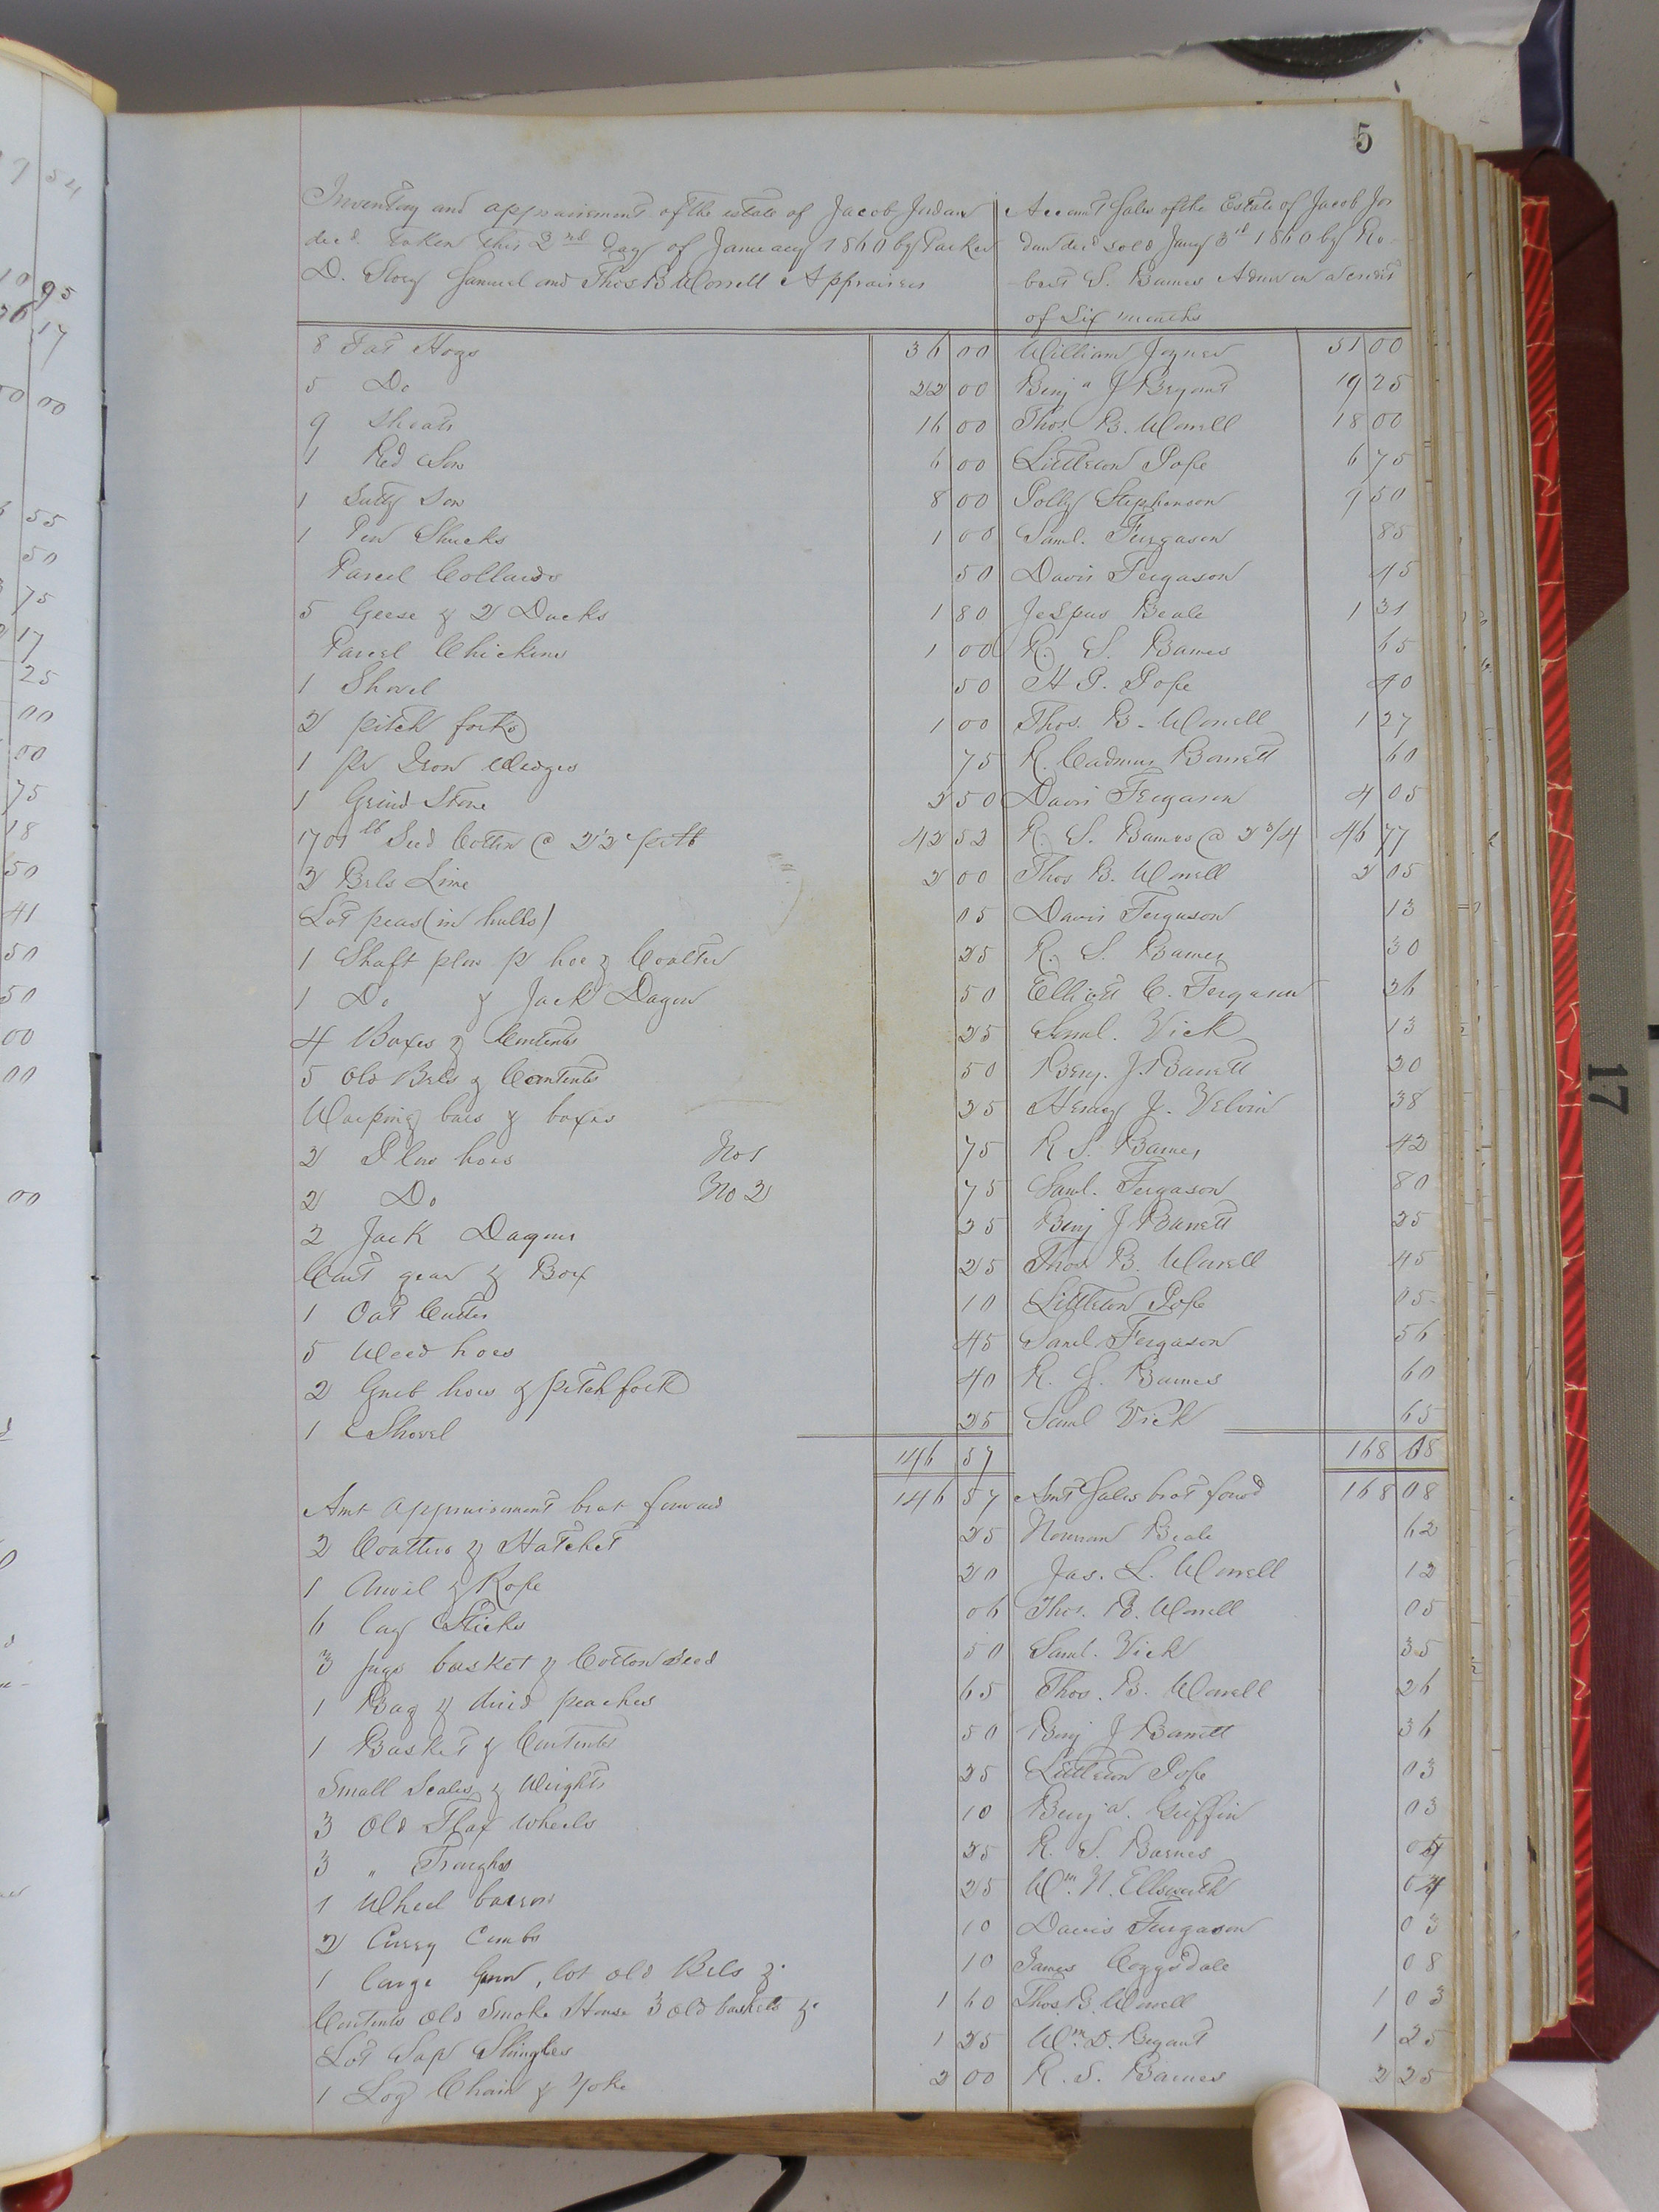 5
Inventory and appraisement of the estate of Jacob Jordan
decd. taken this 2nd day of January 1860 by Parker
D. Story Samuel and Thos B Worrell Appraisers
Account Sales of the Estate of Jacob Jor
dan decd sold Jany 3rd 1860 by Ro-
bert S. Barnes Admr on a Credit
of Six months
8 Fat Hogs 36 00 William Joyner 51 00
5 Do 22 00 Benja J Bryant 19 25
9 Shoats 16 00 Thos. B. Worrell 18 00
1 Red Sow 6 00 Littleton Pope 6 75
1 Sutty Sow 8 00 Polly Stephenson 9 50
1 Pen Shucks 1 00 Saml. Fergason 85
Parcel Collards 50 Davis Fergason 45
5 Geese & 2 Ducks 1 80 Jespus Beale 1 31
Parcel Chickens 1 00 R. S. Barnes 65
1 Shovel 50 H P. Pope 40
2 pitch forks 1 00 Thos. B. Worrell 1 27
1 Pr Iron Wedges 75 R. Cadmus Barrett 60
1 Grind Stone 2 50 Davis Fergason 4 05
1701 lb Seed Cotton @ 2½c pr lb 42 52 R. S. Barnes @ 2 3/4 46 77
2 Brls Lime 2 00 Thos B. Worrell 2 05
Lot peas (in hulls) 05 Davis Ferguson 13
1 Shaft plow p hoe & Coalter 25 R. S. Barnes 30
1 Do & Jack Dagon 50 Elliott C. Fergason 26
4 Boxes & Contents 25 Saml. Vick 13
5 Old Brls & Contents 50 Benj. J. Barrett 20
Warping bars & boxes 25 Henry J. Velvin 38
2 Plow hoes No 1 75 R S. Barnes 42
2 Do No 2 75 Saml. Fergason 80
2 Jack Dagons 25 Benj J Barrett 25
Cart gear & Box 25 Thos B. Worrell 45
1 Oat Cutter 10 Littleton Pope 05
5 Weed hoes 45 Saml Fergason 56
2 Grub hoes & pitch fork 40 R. S. Barnes 60
1 Shovel 25 Saml Vick 65
146 57 168 08
Amt appraisement brot forward 146 57 Amt Sales brot forwd 168 08
2 Coalters & Hatchet 25 Norman Beale 62
1 Anvil & Rope 20 Jas. L. Worrell 12
6 Cag Sticks 06 Thos. B. Worrell 05
3 Jugs basket & Cotton Seed 50 Saml. Vick 35
1 Bag & dried peaches 65 Thos. B. Worrell 26
1 Basket & Contents 50 Benj J Barrett 36
Small Scales & Weights 25 Littleton Pope 03
3 Old Flax Wheels 10 Benja. Griffin 03
3 " Troughs 25 R. S. Barnes 04
1 Wheel barrow 25 Wm. N. Ellsworth 04
2 Currey Combs 10 Davis Fergason 03
1 large Gum, lot old Brls &. 10 James Coggsdale 08
Contents Old Smoke House 3 old baskets &. 1 60 Thos B. Worrell 1 03
Lot Sap Shingles 1 25 Wm D. Bryant 1 25
1 Log Chain & Yoke 2 00 R. S. Barnes 2 25
17